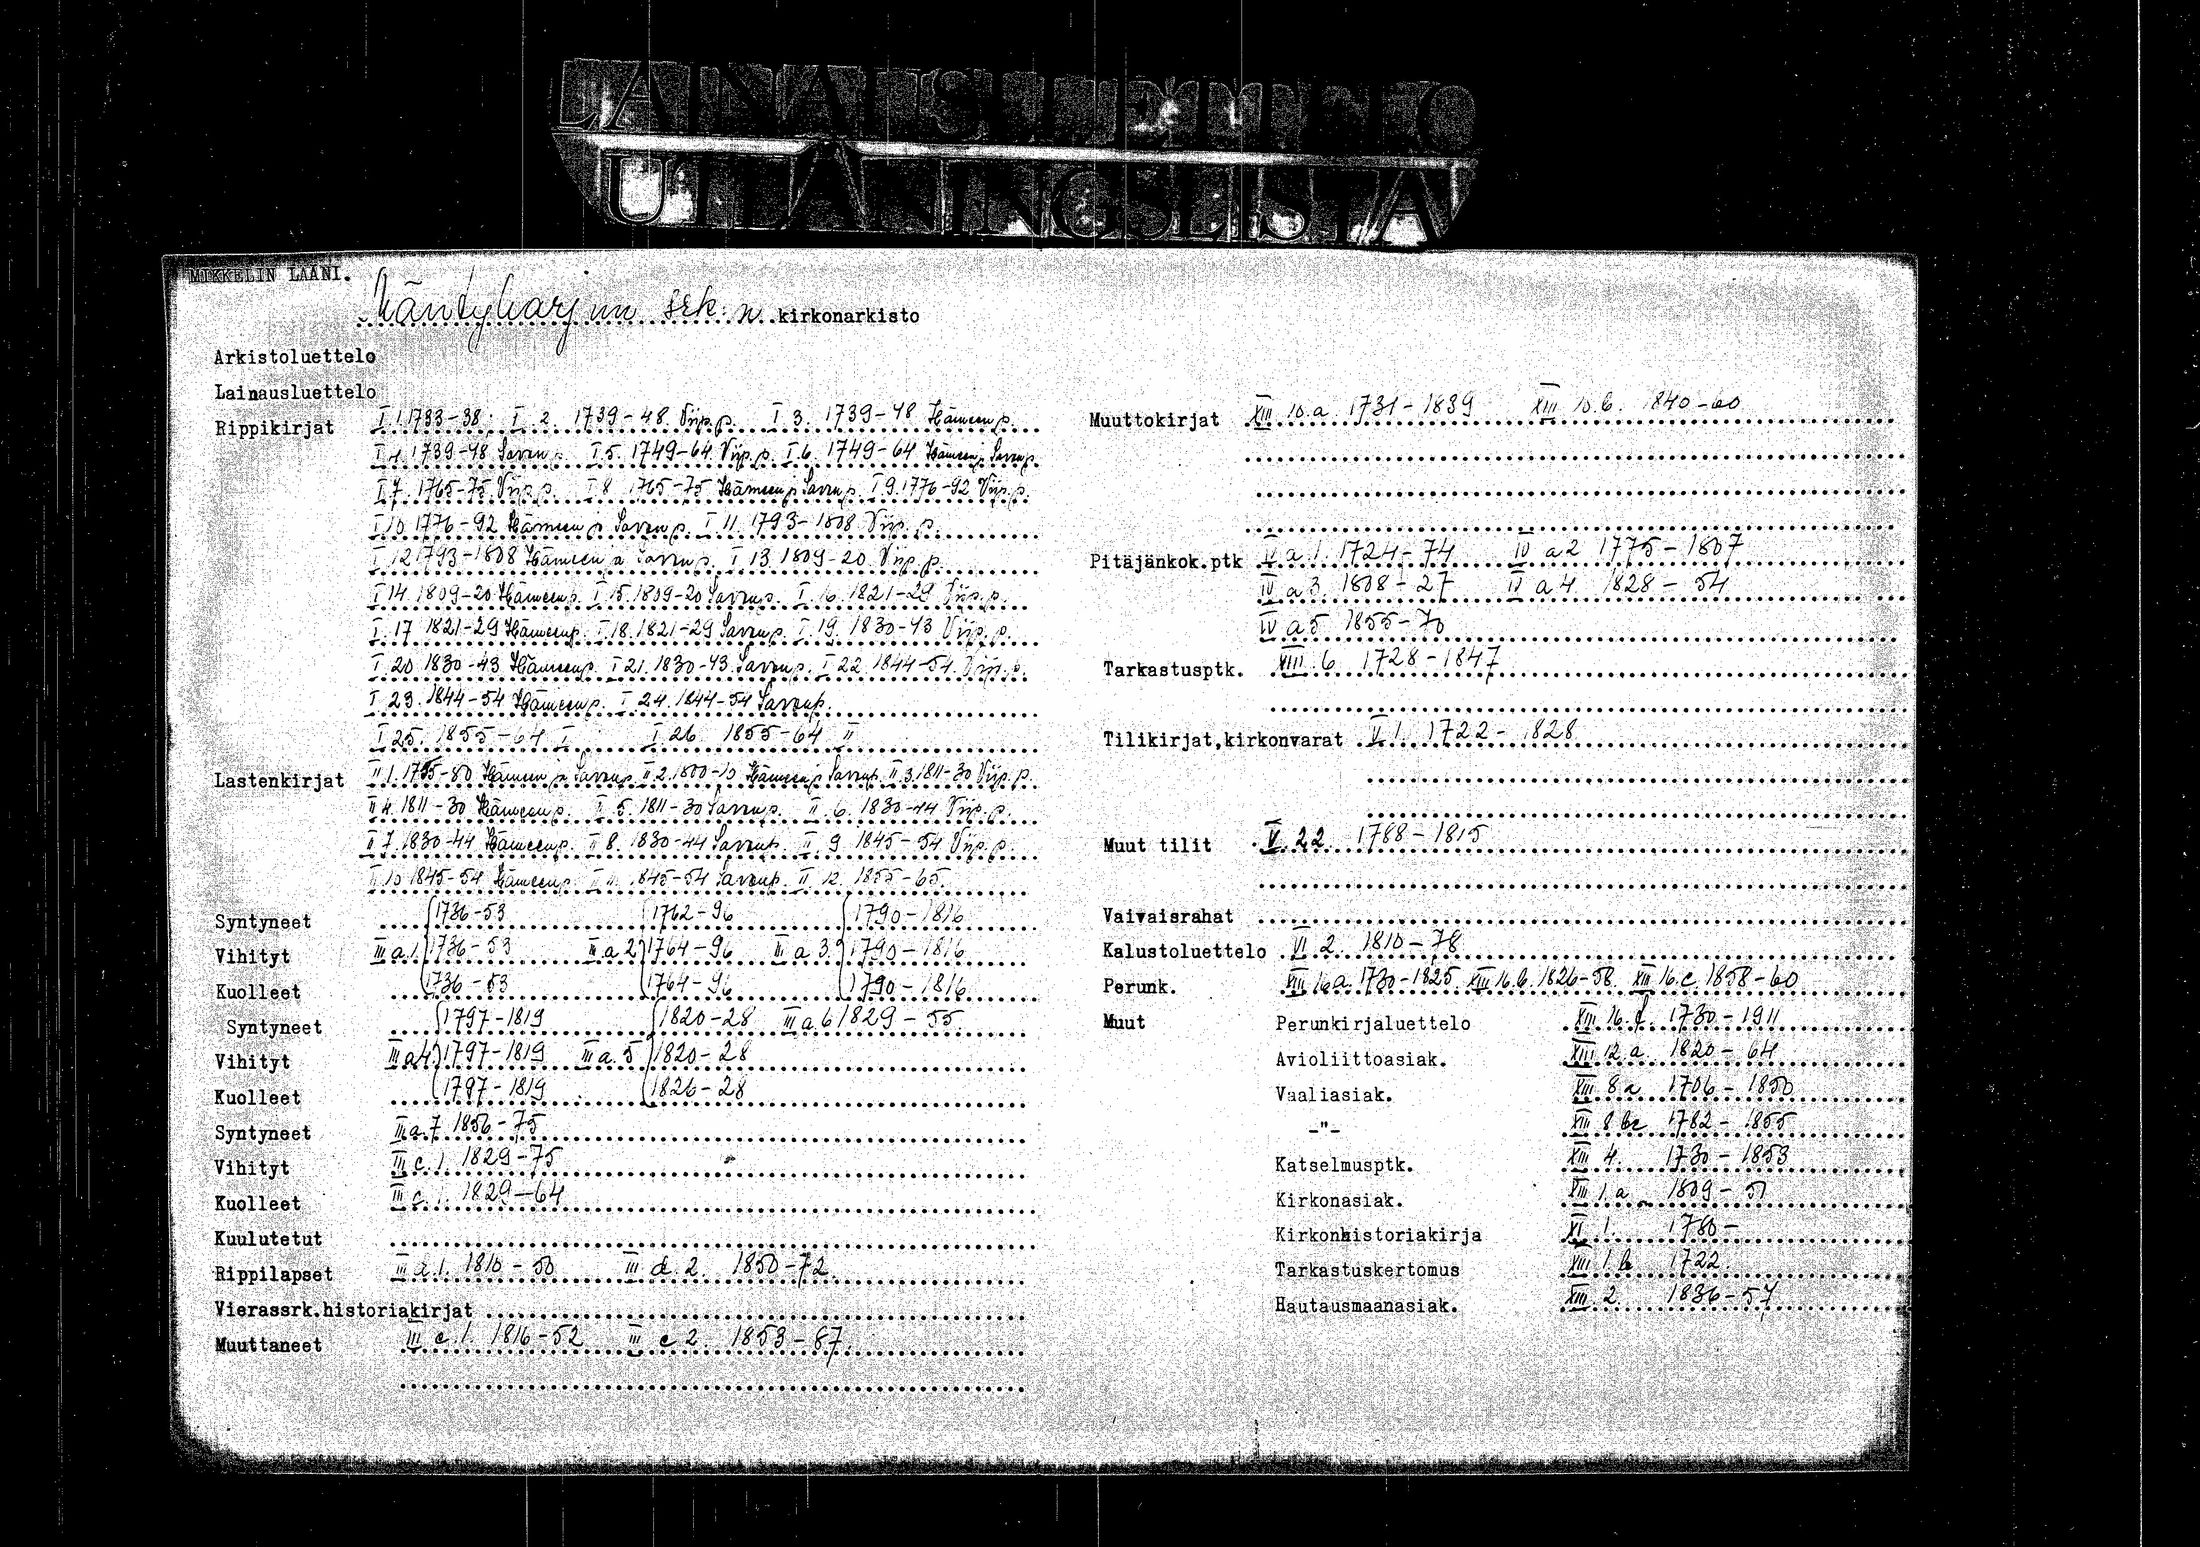 LAINAUSLUETTELO
UTLÅNINGSLISTA
MIKKELIN LÄÄNI.
Mäntyharjun srk:n kirkonarkisto
Arkistoluettelo
Lainausluettelo
Rippikirjat I 1. 1733-38. I 2. 1739-48 Viip.p. I 3. 1739-48 Hämeenp.
I 4. 1739-48 Savonp. I 5. 1749-64 Viip.p. I 6. 1749-64 Hämeen ja Savonp.
I 7. 1765-75 Viip.p. I 8 1765-75 Hämeen ja Savonp. I 9. 1776-92 Viip.p.
I 10 1776-92 Hämeen ja Savonp. I 11. 1793-1808 Viip.p.
I 12 1793-1808 Hämeen ja Savonp. I 13. 1809-20 Viip.p.
I 14. 1809-20 Hämeenp. I 15. 1809-20 Savonp. I 16. 1821-29 Viip.p.
I 17 1821-29 Hämeenp. I 18. 1821-29 Savonp. I 19. 1830-43 Viip.p.
I 20. 1830-43 Hämeenp. I 21. 1830-43 Savonp. I 22. 1844-54 Viip.p.
I 23. 1844-54 Hämeenp. I 24. 1844-54 Savonp.
I 25. 1855-64 I I 26. 1855-64 II
Lastenkirjat II 1. -80 Hämeen ja Savonp. II 2. 1800-10 Hämeen ja Savonp. II 3. 1811-30 Viip.p.
II 4. 1811-30 Hämeenp. II 5. 1811-30 Savonp. II 6. 1830-44 Viip.p.
II 7. 1830-44 Hämeenp. II 8. 1830-44 Savonp. II 9. 1845-54 Viip.p.
II 10 1845-54 Hämeenp. II 11. 1845-54 Savonp. II 12. 1855-65.
Syntyneet 1736-53 1762-96 1790-1816
Vihityt III a 1. 1736-53 III a 2 1764-96 III a 3. 1790-1816
Kuolleet 1736-53 1764-96 1790-1816
Syntyneet 1797-1819 1820-28 III a 6 1829-55
Vihityt III a 4 1797-1819 III a 5 1820-28
Kuolleet 1797-1819 1826-28
Syntyneet III a 7 1856-75
Vihityt III c. 1. 1829-75
Kuolleet III c. 1. 1829-64
Kuulutetut
Rippilapset III d. 1. 1810-50 III d. 2. 1850-72
Vierassrk.historiakirjat
Muuttaneet III e. 1. 1816-52 III e 2 1853-87.
Muuttokirjat XIII 10.a. 1731-1839 XIII 10.b. 1840-60
Pitäjänkok.ptk IV a 1. 1724-74 IV a 2 1775-1807
IV a 3. 1808-27 IV a 4. 1828-54
IV a 5 1855-70
Tarkastusptk. XIII. 6. 1728-1847
Tilikirjat,kirkonvarat V 1. 1722-1828
Muut tilit V. 22. 1788-1815
Vaivaisrahat
Kalustoluettelo VI 2. 1810-78
Perunk. XIII 16 a. 1730-1825. XIII 16.b. 1826-58. XIII 16.c. 1858-60
Muut Perunkirjaluettelo XIII 16. d. 1730-1911
Avioliittoasiak. XIII 12.a. 1820-64
Vaaliasiak. XIII 8 a 1706-1850
-"- XIII 8 bc 1782-1855
Katselmusptk. XIII 4. 1730-1853
Kirkonasiak. XIII 1.a 1809-51
Kirkonhistoriakirja XI 1. 1780-
Tarkastuskertomus XIII 1.b 1722.
Hautausmaanasiak. XIII. 2. 1836-57